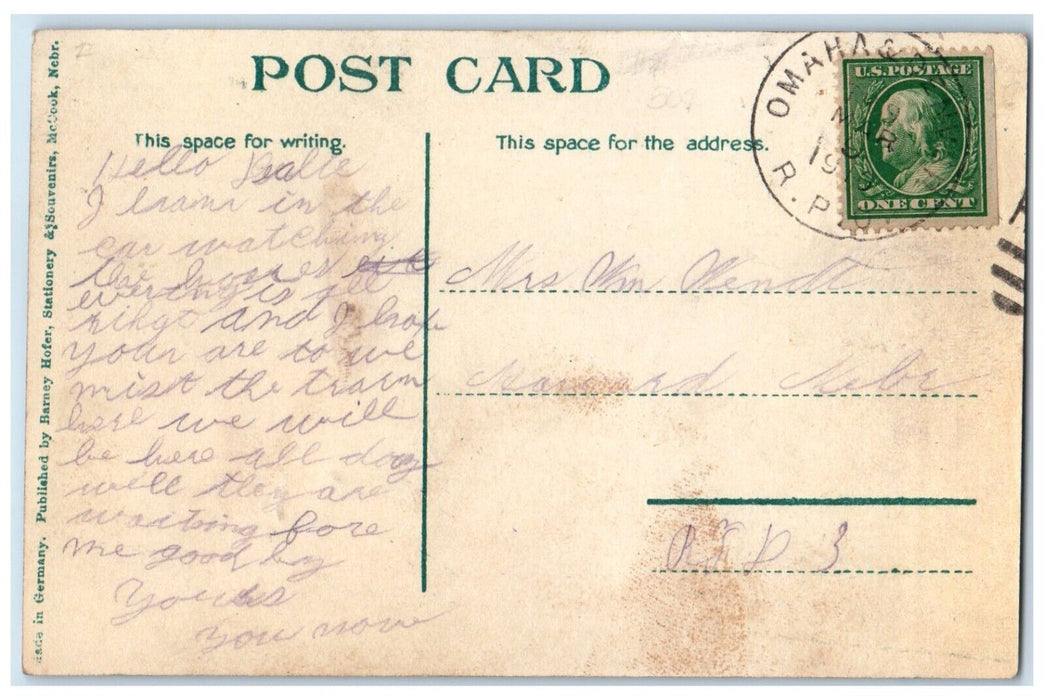 POST CARD
This space for writing.
This space for the address.
Made in Germany. Published by Barney Hofer, Stationery & Souvenirs, McCook, Nebr.
OMAHA &
MAR
R.P.O.
U.S. POSTAGE
ONE CENT
Hello
I in the
car watching
the
is all
and I hope
your are to we
mist the train
here we will
be here all day
well they are
waiting fore
me good by
Yours
You now
Mrs Wm Wendt
Nebr
RFD 3